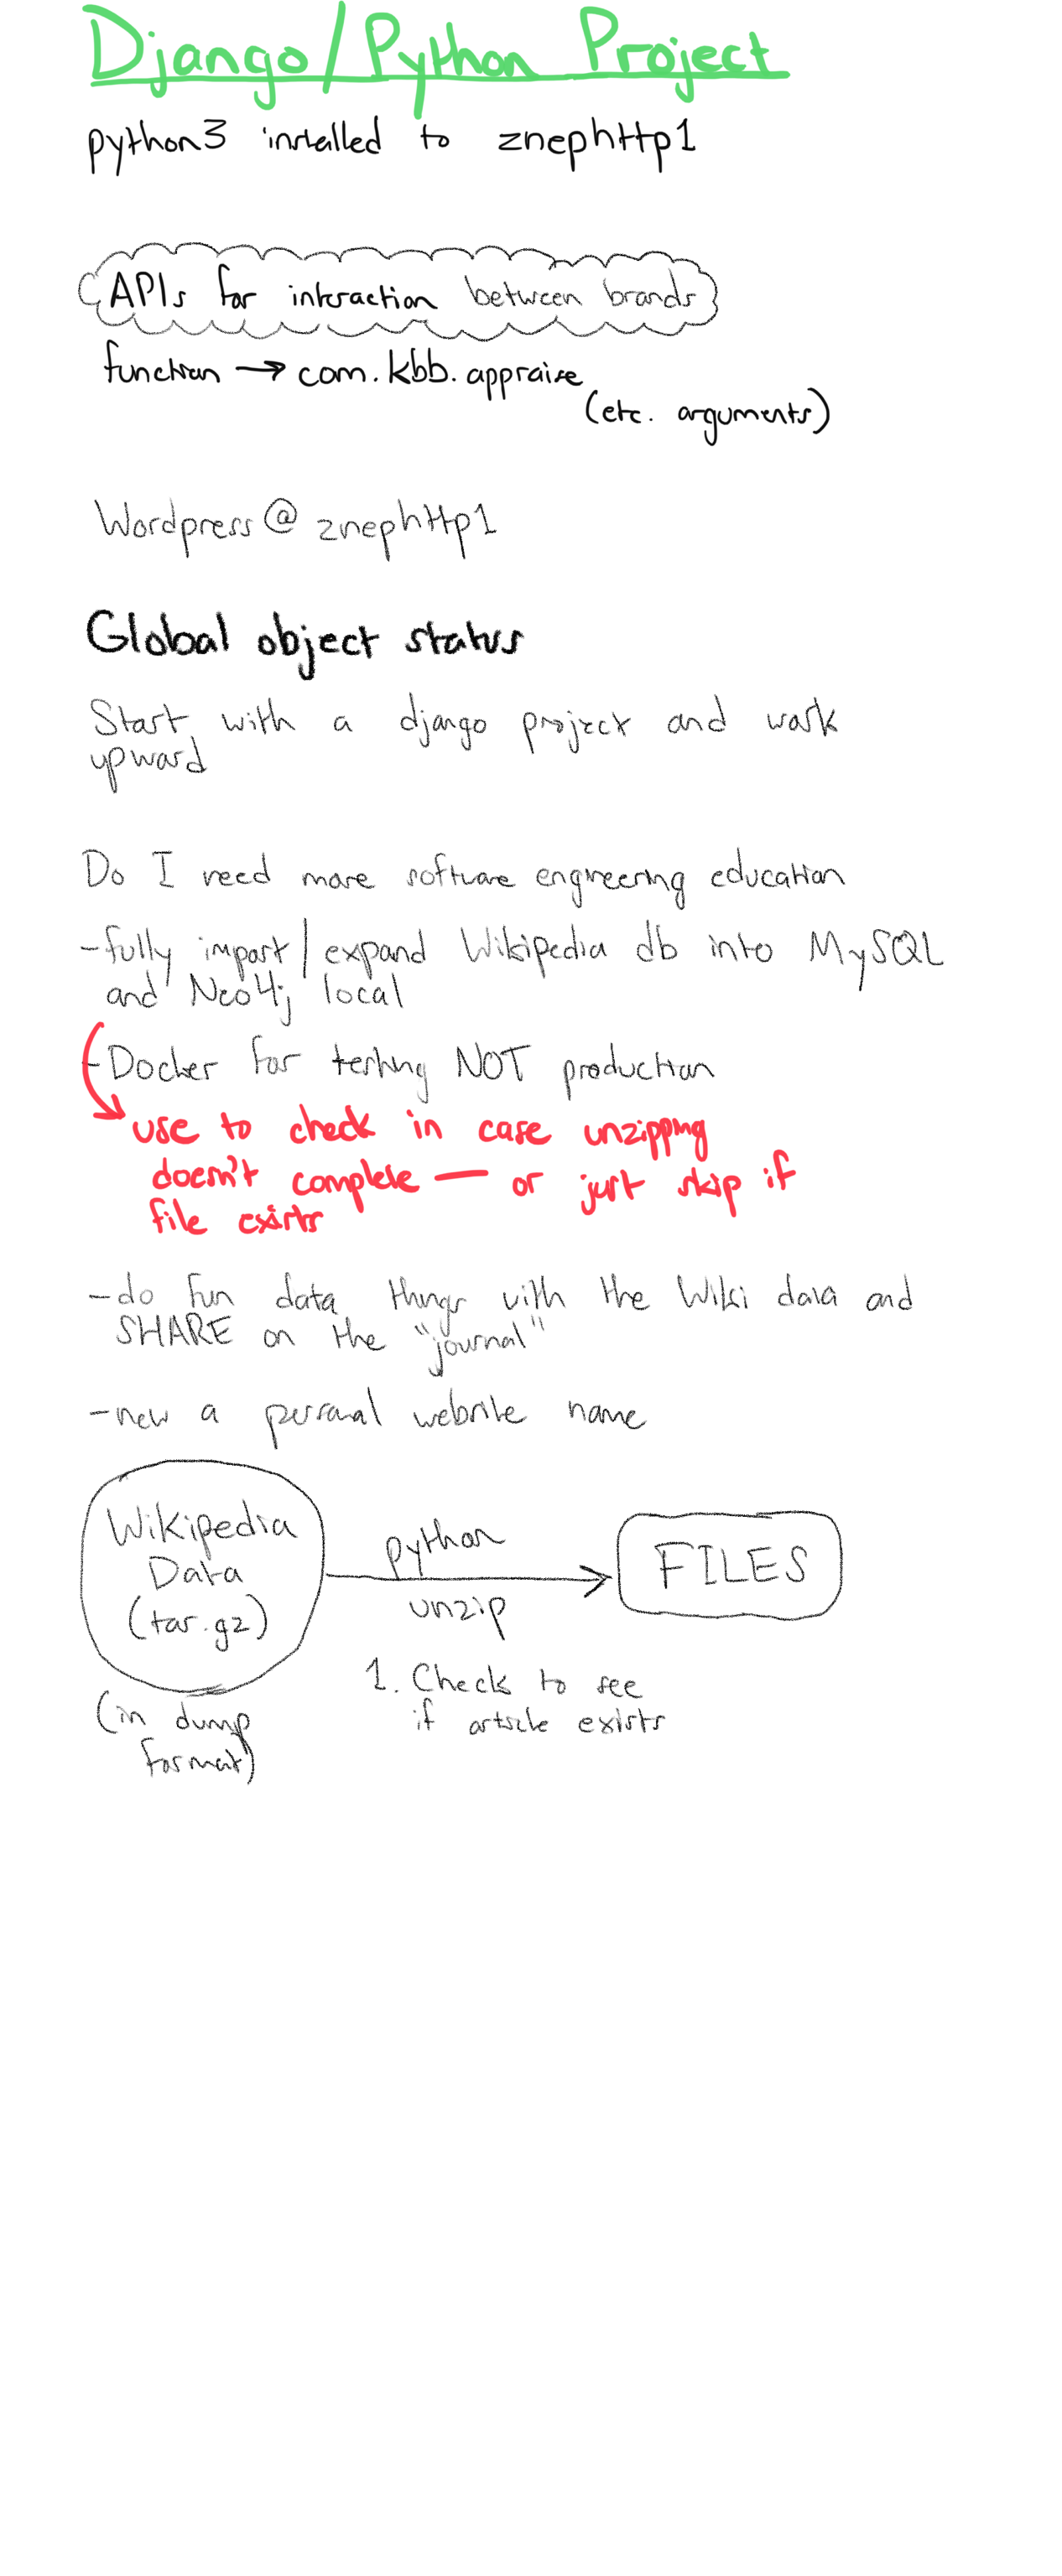 Django/Python Project
python3 installed to znephttp1
APIs for interaction between brands
function → com.kbb.appraise
(etc. arguments)
Wordpress @ znephttp1
Global object status
Start with a django project and work
upward
Do I need more software engineering education
-fully import/expand Wikipedia db into MySQL
and Neo4j local
-Docker for testing NOT production
use to check in case unzipping
doesn't complete — or just skip if
file exists
-do fun data things with the Wiki data and
SHARE on the "journal"
-new a personal website name
Wikipedia
Data
(tar.gz)
(in dump
format)
python
unzip
1. Check to see
if article exists
FILES